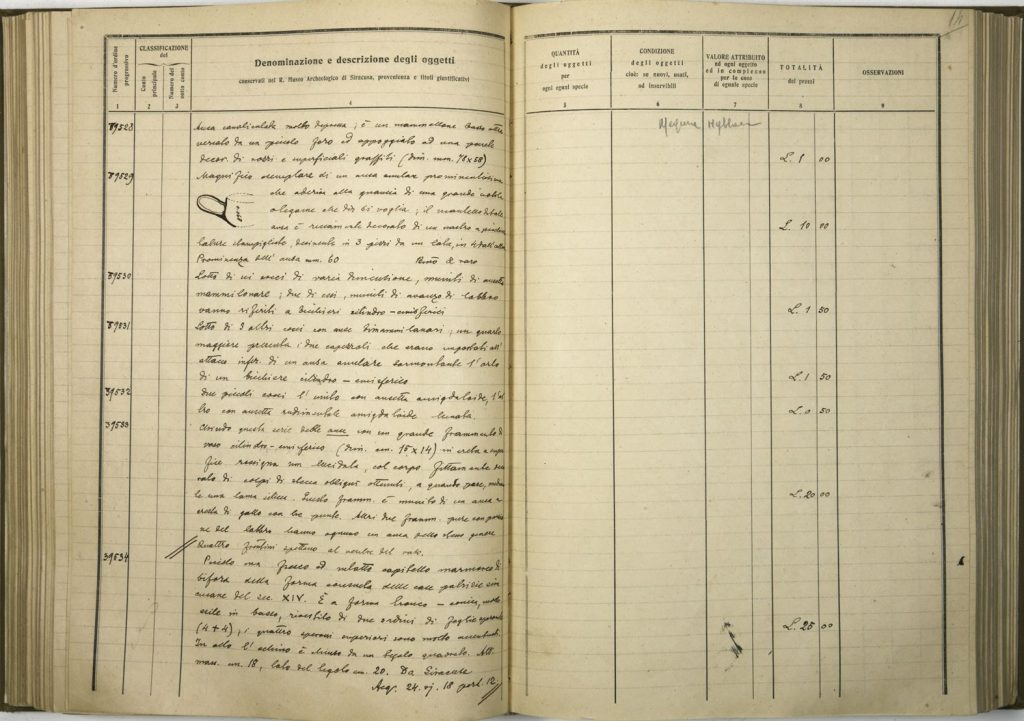 14
Numero d'ordine progressivo
CLASSIFICAZIONE del
Conto principale
Numero del sotto conto
Denominazione e descrizione degli oggetti
conservati nel R. Museo Archeologico di Siracusa, provenienza e titoli giustificativi
QUANTITÀ degli oggetti per ogni egual specie
CONDIZIONE degli oggetti cioè: se nuovi, usati, od inservibili
VALORE ATTRIBUITO ad ogni oggetto od in complesso per le cose di eguale specie
TOTALITÀ dei prezzi
OSSERVAZIONI
1 2 3 4 5 6 7 8 9
Megara Hyblaea
39528
Ansa canaliculata molto depressa; è un mammellone basso attra
versato da un piccolo foro ed appoggiato ad una parete
decor. di rozzi e superficiali graffiti (dim. mm. 78x58)
L. 1 00
39529
Magnifico esemplare di un ansa anulare prominentissima
che aderiva alla guancia di una grande
olegame che dir si voglia; il
ansa è riccamente decorato di un nastro a
stampigliato, desinente in 3 pezzi da un lato, in 4 dall'altro
Prominenza dell'ansa mm. 60
L. 10 00
39530
Lotto di sei cocci di varia dimensione, muniti di ansette
mammillonare; due di essi, muniti di avanzo di labbro
vanno riferiti a bicchieri cilindro-emisferici
L. 1 50
39531
Lotto di 3 altri cocci con anse bimammillonari; un quarto
maggiore presenta i due capezzoli che erano impostati all'
attacco infer. di un ansa anulare sormontante l'orlo
di un bicchiere cilindro-emisferico
L. 1 50
39532
Due piccoli cocci l'unito con ansetta amigdaloide, l'al
tro con ansetta rudimentale amigdaloide lunata.
L. 0. 50
39533
Chiudo questa serie delle anse con un grande frammento di
vaso cilindro-emisferico (dim. cm. 15x14) in creta a super
ficie rossigna non lucidata, col corpo fittamente deco
rato di colpi di stecca obliqui ottenuti, a quando pare, media
te una lama silicea. Questo framm. è munito di un ansa a
cresta di gallo con tre punte. Altri due framm. pure con porzio
ne del labbro hanno ognuno un ansa dello stesso genere
Quattro frantumi spettano al ventre del vaso.
L. 20 00
39534
Piccolo ma fresco ed intatto capitello marmoreo di
bifora della forma consueta delle case patrizie sira
cusane del sec. XIV. È a forma tronco-conica, molto
esile in basso, rivestito di due ordini di foglie
(4+4); i quattro superiori sono molto accentuati.
In alto l'echino è chiuso da un quadrato. Alt.
mass. cm. 18, lato del cm. 20. Da Siracusa
Acq. 24. vj. 18 port. 12
L. 25 00